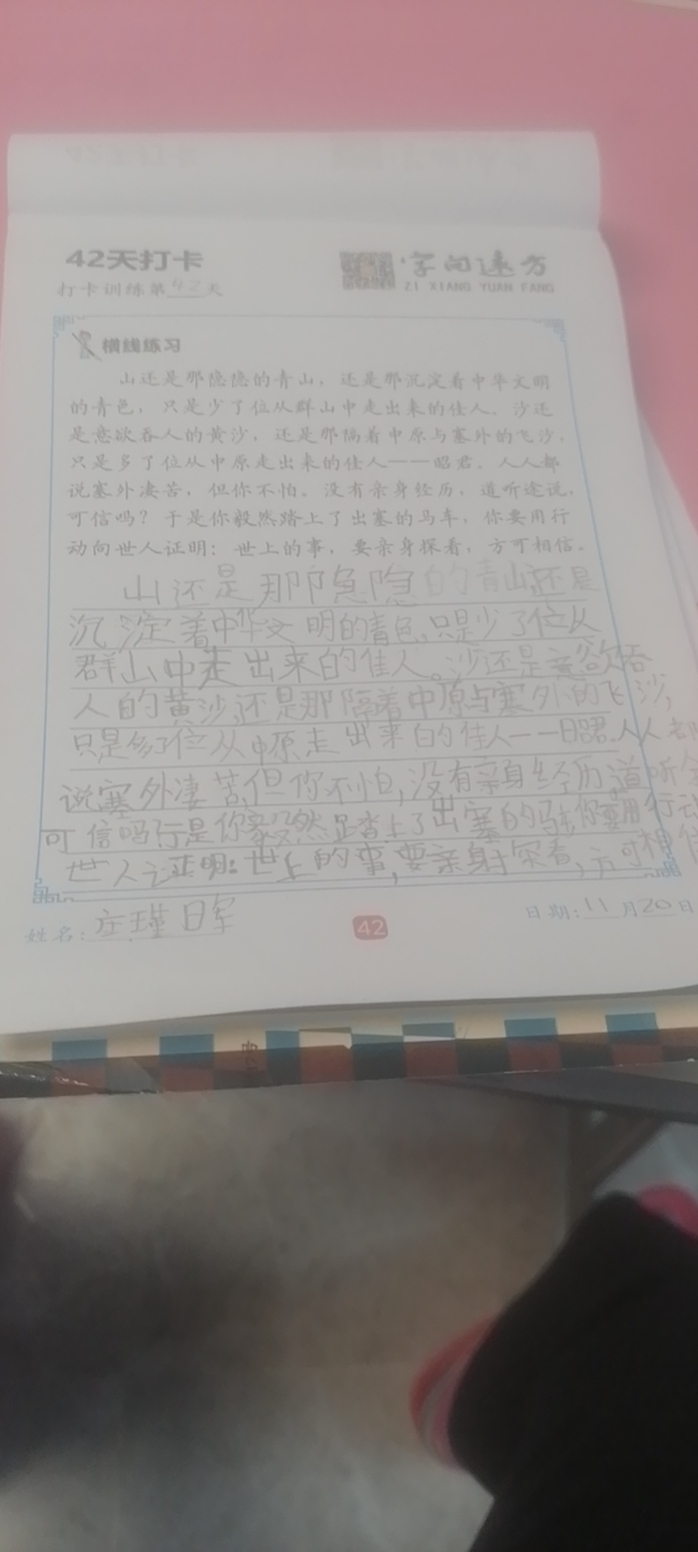 42天打卡
字向远方
打卡训练第42天
ZI XIANG YUAN FANG
横线练习
山还是那隐隐的青山，还是那沉淀着中华文明
的青色，只是少了位从群山中走出来的佳人。沙还
是意欲吞人的黄沙，还是那隔着中原与塞外的飞沙，
只是多了位从中原走出来的佳人——昭君。人人都
说塞外凄苦，但你不怕。没有亲身经历，道听途说，
可信吗？于是你毅然踏上了出塞的马车，你要用行
动向世人证明：世上的事，要亲身探看，方可相信。
山还是那隐隐的青山还是
沉淀着中华文明的青色,只是少了位从
群山中走出来的佳人。沙还是意欲吞
人的黄沙,还是那隔着中原与塞外的飞沙,
只是多了位从中原走出来的佳人——昭君.人人都
说塞外凄苦,但你不怕,没有亲身经历道听
可信吗行是你毅然踏上了出塞的你要用行动
世人证明:世上的事,要亲身探看,方可相信
姓名:庄瑾
42
日期:11月20日